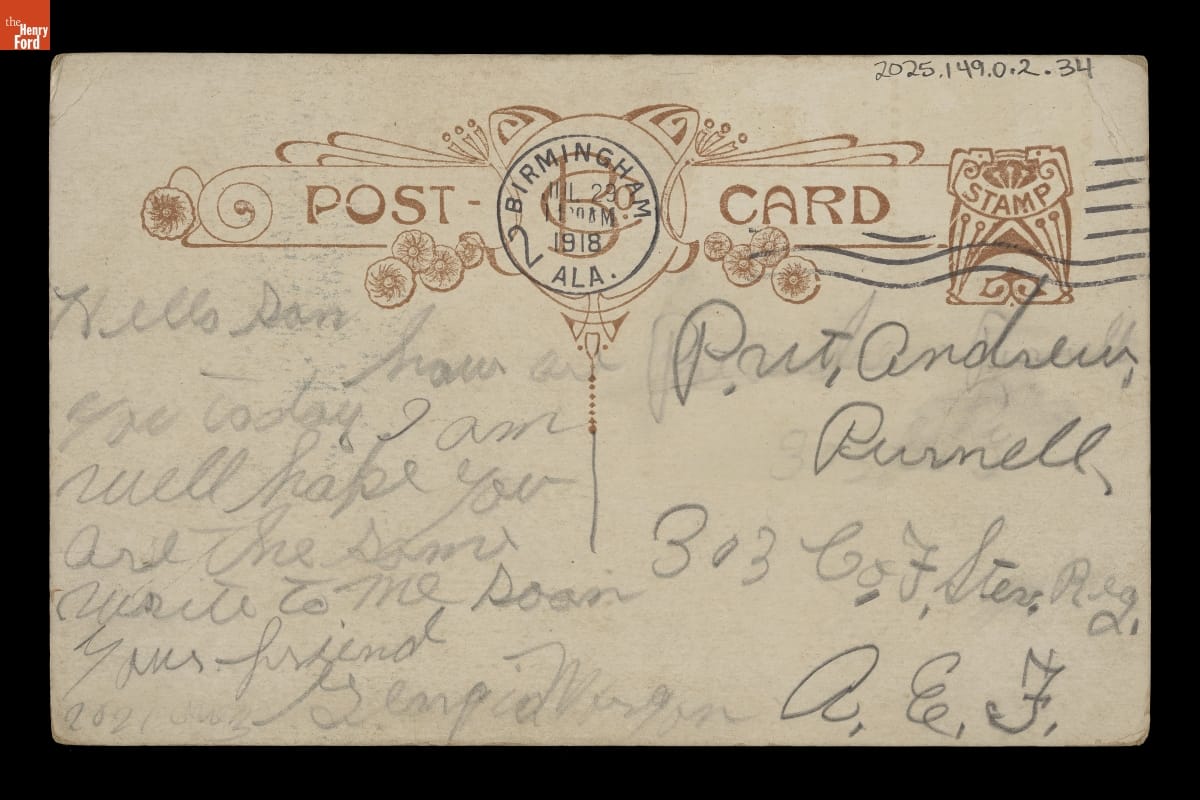 the
Henry
Ford
2025.149.0.2.34
POST-CARD
STAMP
BIRMINGHAM
JUL 29
1918
ALA.
2
B
Hello Son
how are
you today I am
well hope you
are the same
write to me soon
your friend
Georgia Morgan
Pvt, Andrew,
Purnell,
303 Co F, Stev. Reg
Q.
A. E. F.